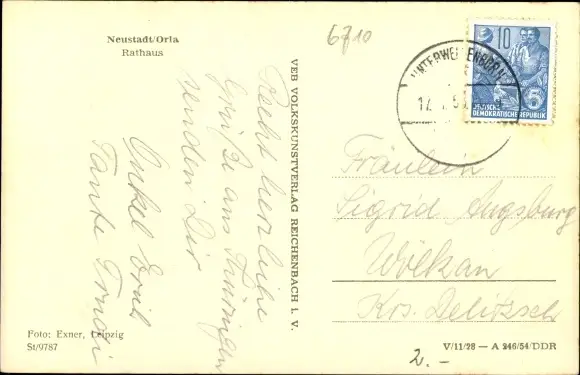 Neustadt/Orla
Rathaus
6710
Recht herzliche
Grüße aus Thüringen
senden Dir
Onkel
Tante Trudi
VEB VOLKSKUNSTVERLAG REICHENBACH I. V.
10
DEUTSCHE
DEMOKRATISCHE REPUBLIK
5
Fräulein
Sigrid Augsburg
Wölkau
Krs. Delitzsch
Foto: Exner, Leipzig
St/9787
V/11/28 — A 246/54/DDR
2.-